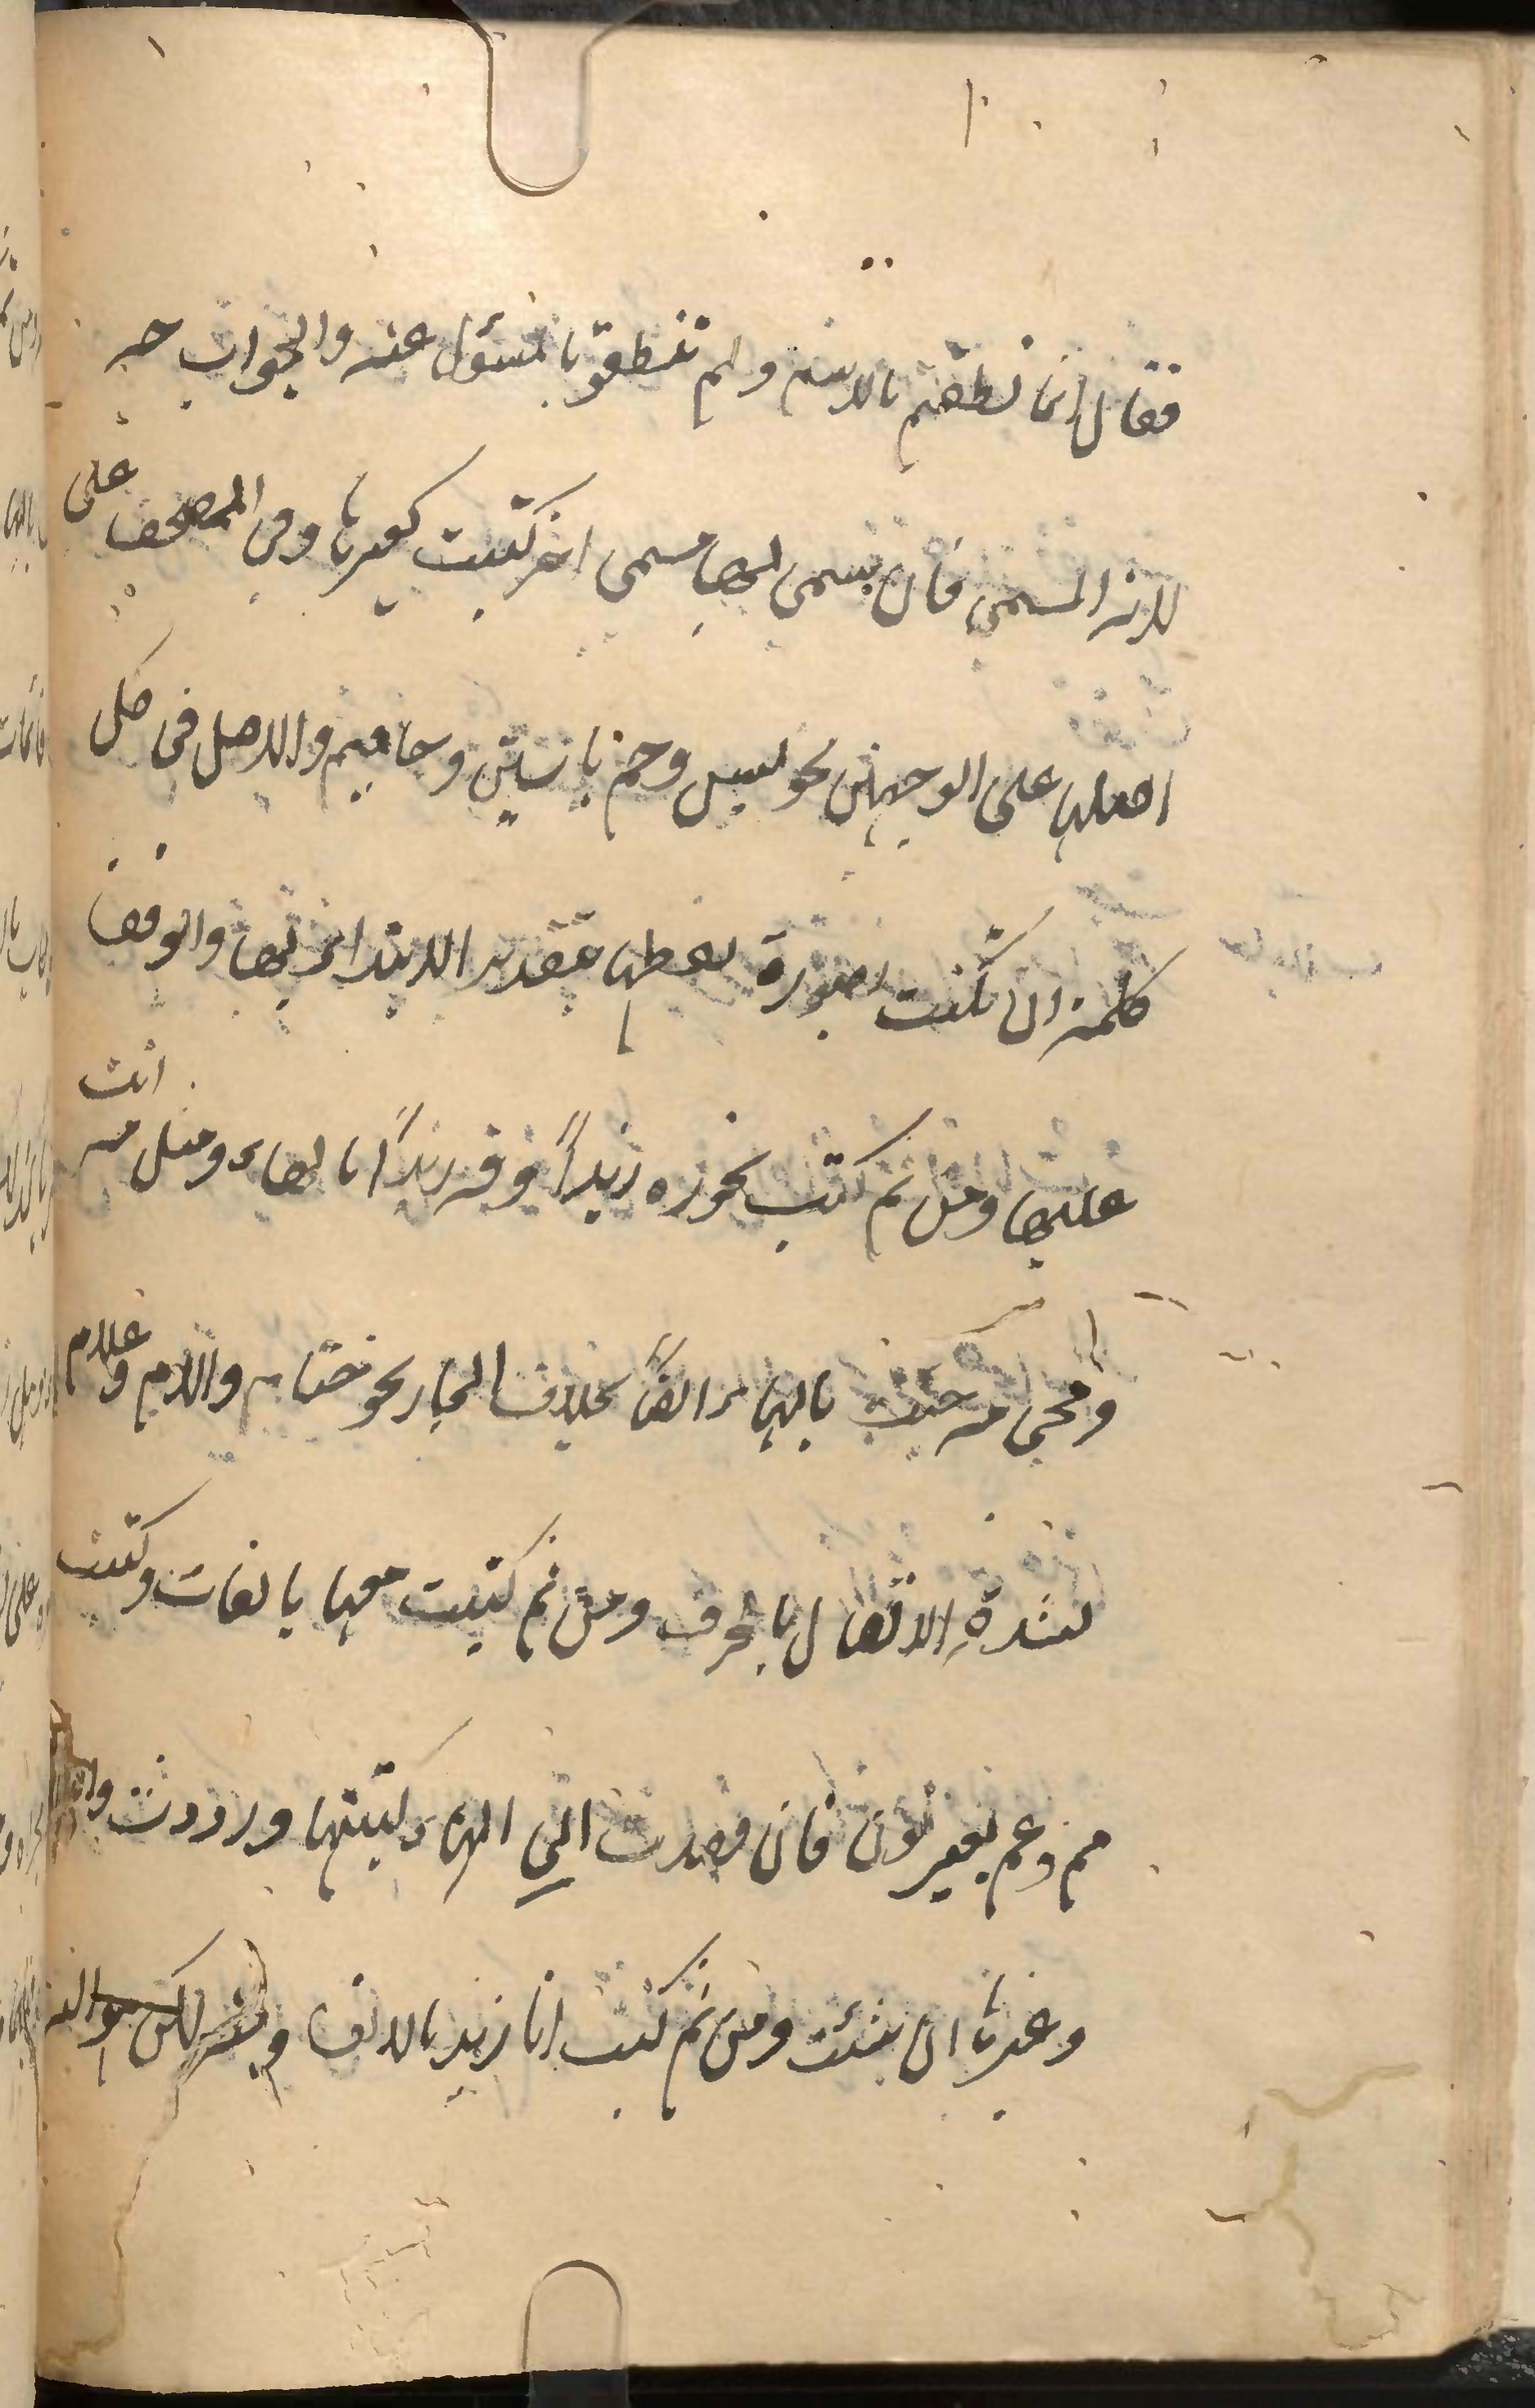 فقال انما نطقتم بالاسم ولم تنطقوا بالمسؤل عنه والجواب جه
لانه المسمى فان سمى بها مسمى اخر كتبت كغيرها وفي المصحف على
اصلها على الوجهين نحو يس وحم ياسين وحاميم والاصل في كل
كلمة ان تكتب بصورة لفظها بتقدير الابتداء بها والوقف
عليها ومن ثم كتب نحو ره زيداً وقه زيداً بالهاء ومثل مه انت
ومجى مه جئت بالهاء ايضاً بخلاف الجار نحو حتام والام وعلام
لشدة الاتصال بالحرف ومن ثم كتبت معها بالفات وكتبت
مم وعم بغير نون فان قصدت الى الهاء كتبتها ورددت
وغيرها ان شئت ومن ثم كتب انا زيد بالالف ومنه لكن هو الله